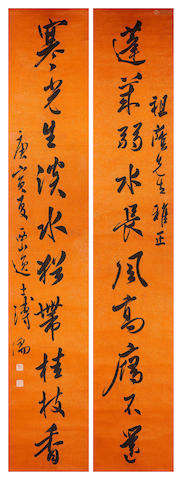 祖蔭先生雅正
蓬萊弱水長風高鴈不還
寒光生淡水猶帶桂枝香
庚寅夏西山逸士溥儒